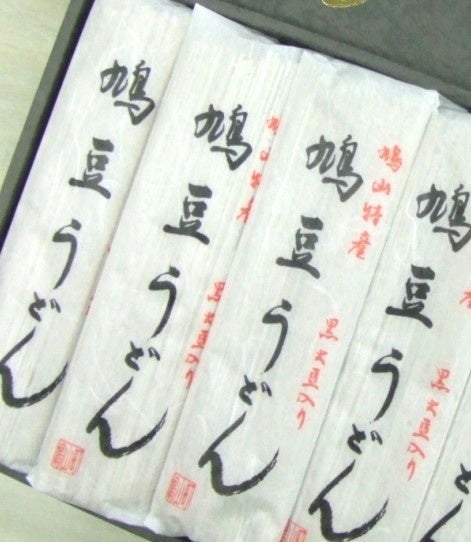 鳩豆うどん
鳩豆うどん
鳩山特産
黒大豆入り
鳩豆うどん
鳩山特産
黒大豆入り
鳩豆うどん
産
黒大豆入り